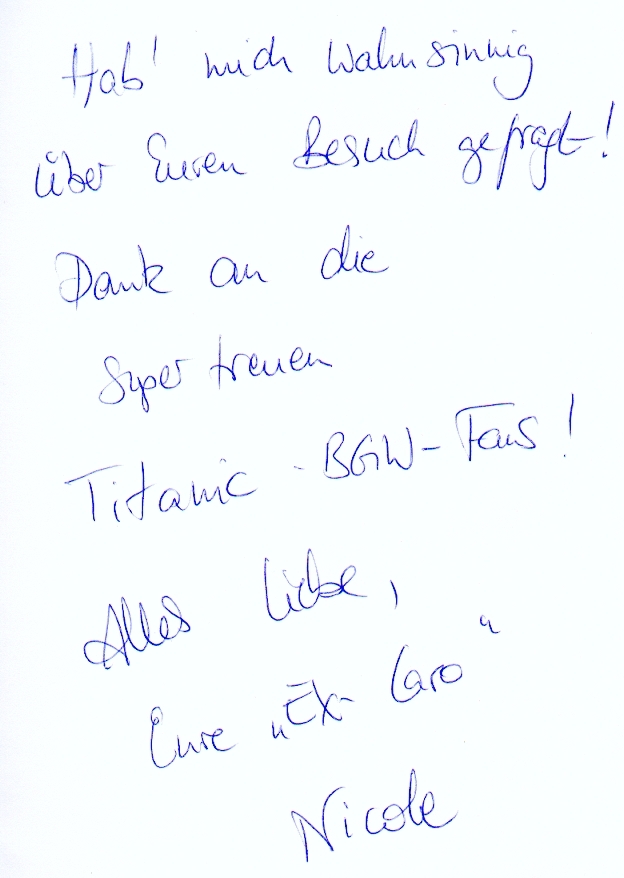 Hab' mich wahnsinnig
über Euren Besuch gefragt!
Dank an die
super treuen
Titanic - BGW-Fans!
Alles Liebe,
Eure „Ex-Caro“
Nicole